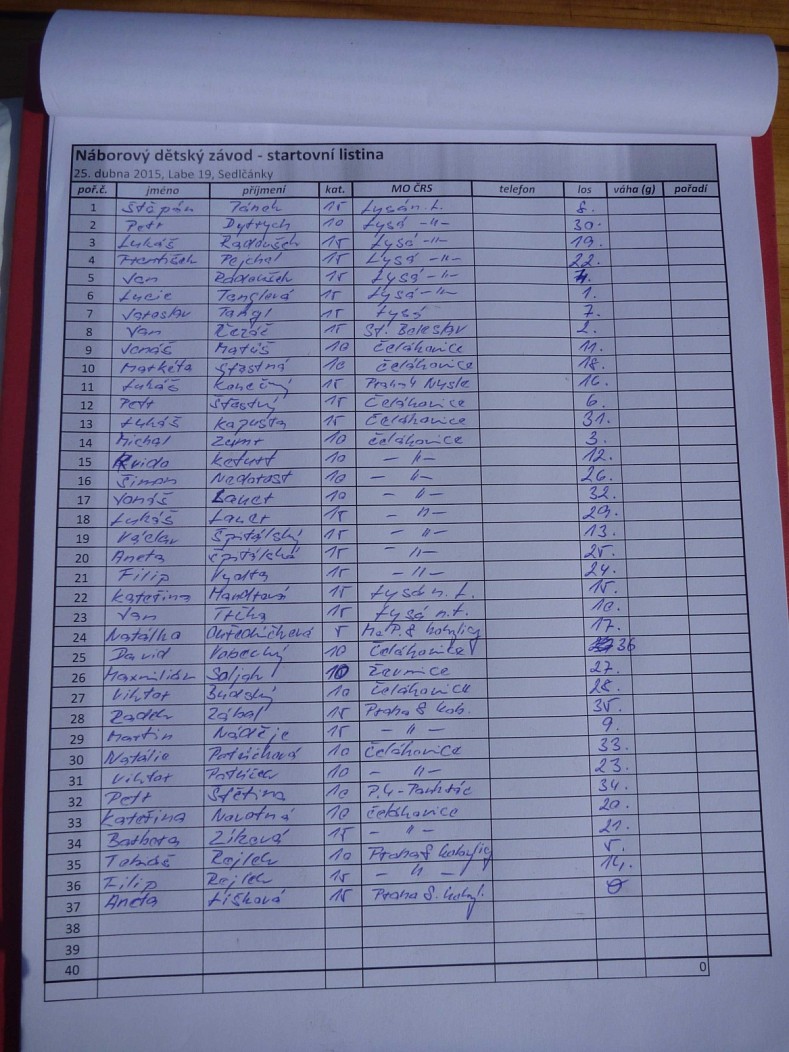 Náborový dětský závod - startovní listina
25. dubna 2015, Labe 19, Sedlčánky
poř.č. jméno příjmení kat. MO ČRS telefon los váha (g) pořadí
1 Štěpán 15 Lysá n. L. 8.
2 Petr Dyttrych 10 Lysá -"- 30.
3 Lukáš Radoušek 15 Lysá -"- 19.
4 František Pejchal 15 Lysá -"- 22.
5 Jan Radoušek 15 Lysá -"-
6 Lucie Tanglová 15 Lysá -"- 1.
7 Jaroslav Tangl 15 Lysá 7.
8 Jan Řezáč 15 St. Boleslav 2.
9 Jonáš Matúš 10 Čelákovice 11.
10 Markéta Šťastná 10 Čelákovice 18.
11 Lukáš Konečný 15 Praha 4 Nusle 16.
12 Petr Šťastný 15 Čelákovice 6.
13 Lukáš Kapusta 15 Čelákovice 31.
14 Michal 10 Čelákovice 3.
15 10 - " - 12.
16 Šimon 10 - " - 26.
17 Jonáš Lauer 10 - " - 32.
18 Lukáš Lauer 15 - " - 29.
19 Václav Špitálský 15 - " - 13.
20 Aneta Špitálská 15 - " - 25.
21 Filip 15 - " - 24.
22 Kateřina Mandtová 15 Lysá n. L. 15.
23 Jan Trčka 15 Lysá n. L. 10.
24 Natálka 5 17.
25 David 10 Čelákovice 36
26 Maxmilián 10 27.
27 Viktor Budský 10 Čelákovice 28.
28 Radek Zábal 15 Praha 8 Kob. 35.
29 Martin Naděje 15 - " - 9.
30 Natálie Patrichová 10 Čelákovice 33.
31 Viktor 10 - " - 23.
32 Petr Štětina 10 34.
33 Kateřina Novotná 10 Čelákovice 20.
34 Barbora Zíková 15 - " - 21.
35 Tomáš Rejlek 10 Praha 8 Kobylisy 5.
36 Filip Rejlek 15 - " - 14.
37 Aneta Lišková 15 Praha 8. Kobyl.
38
39
40 0